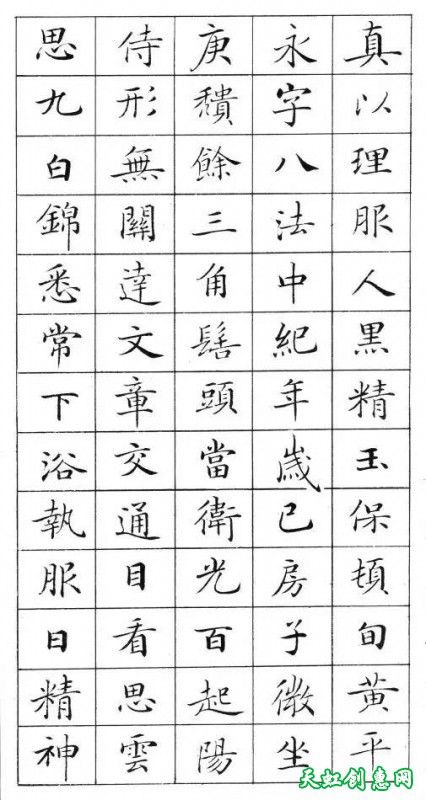 真以理服人黑精玉保頓旬黄平
永字八法中紀年歲已房子微坐
庚積餘三角髻頭當衛光百起陽
侍形無關達文章交通目看思雲
思九白錦悉常下浴執服日精神
天虹创意网